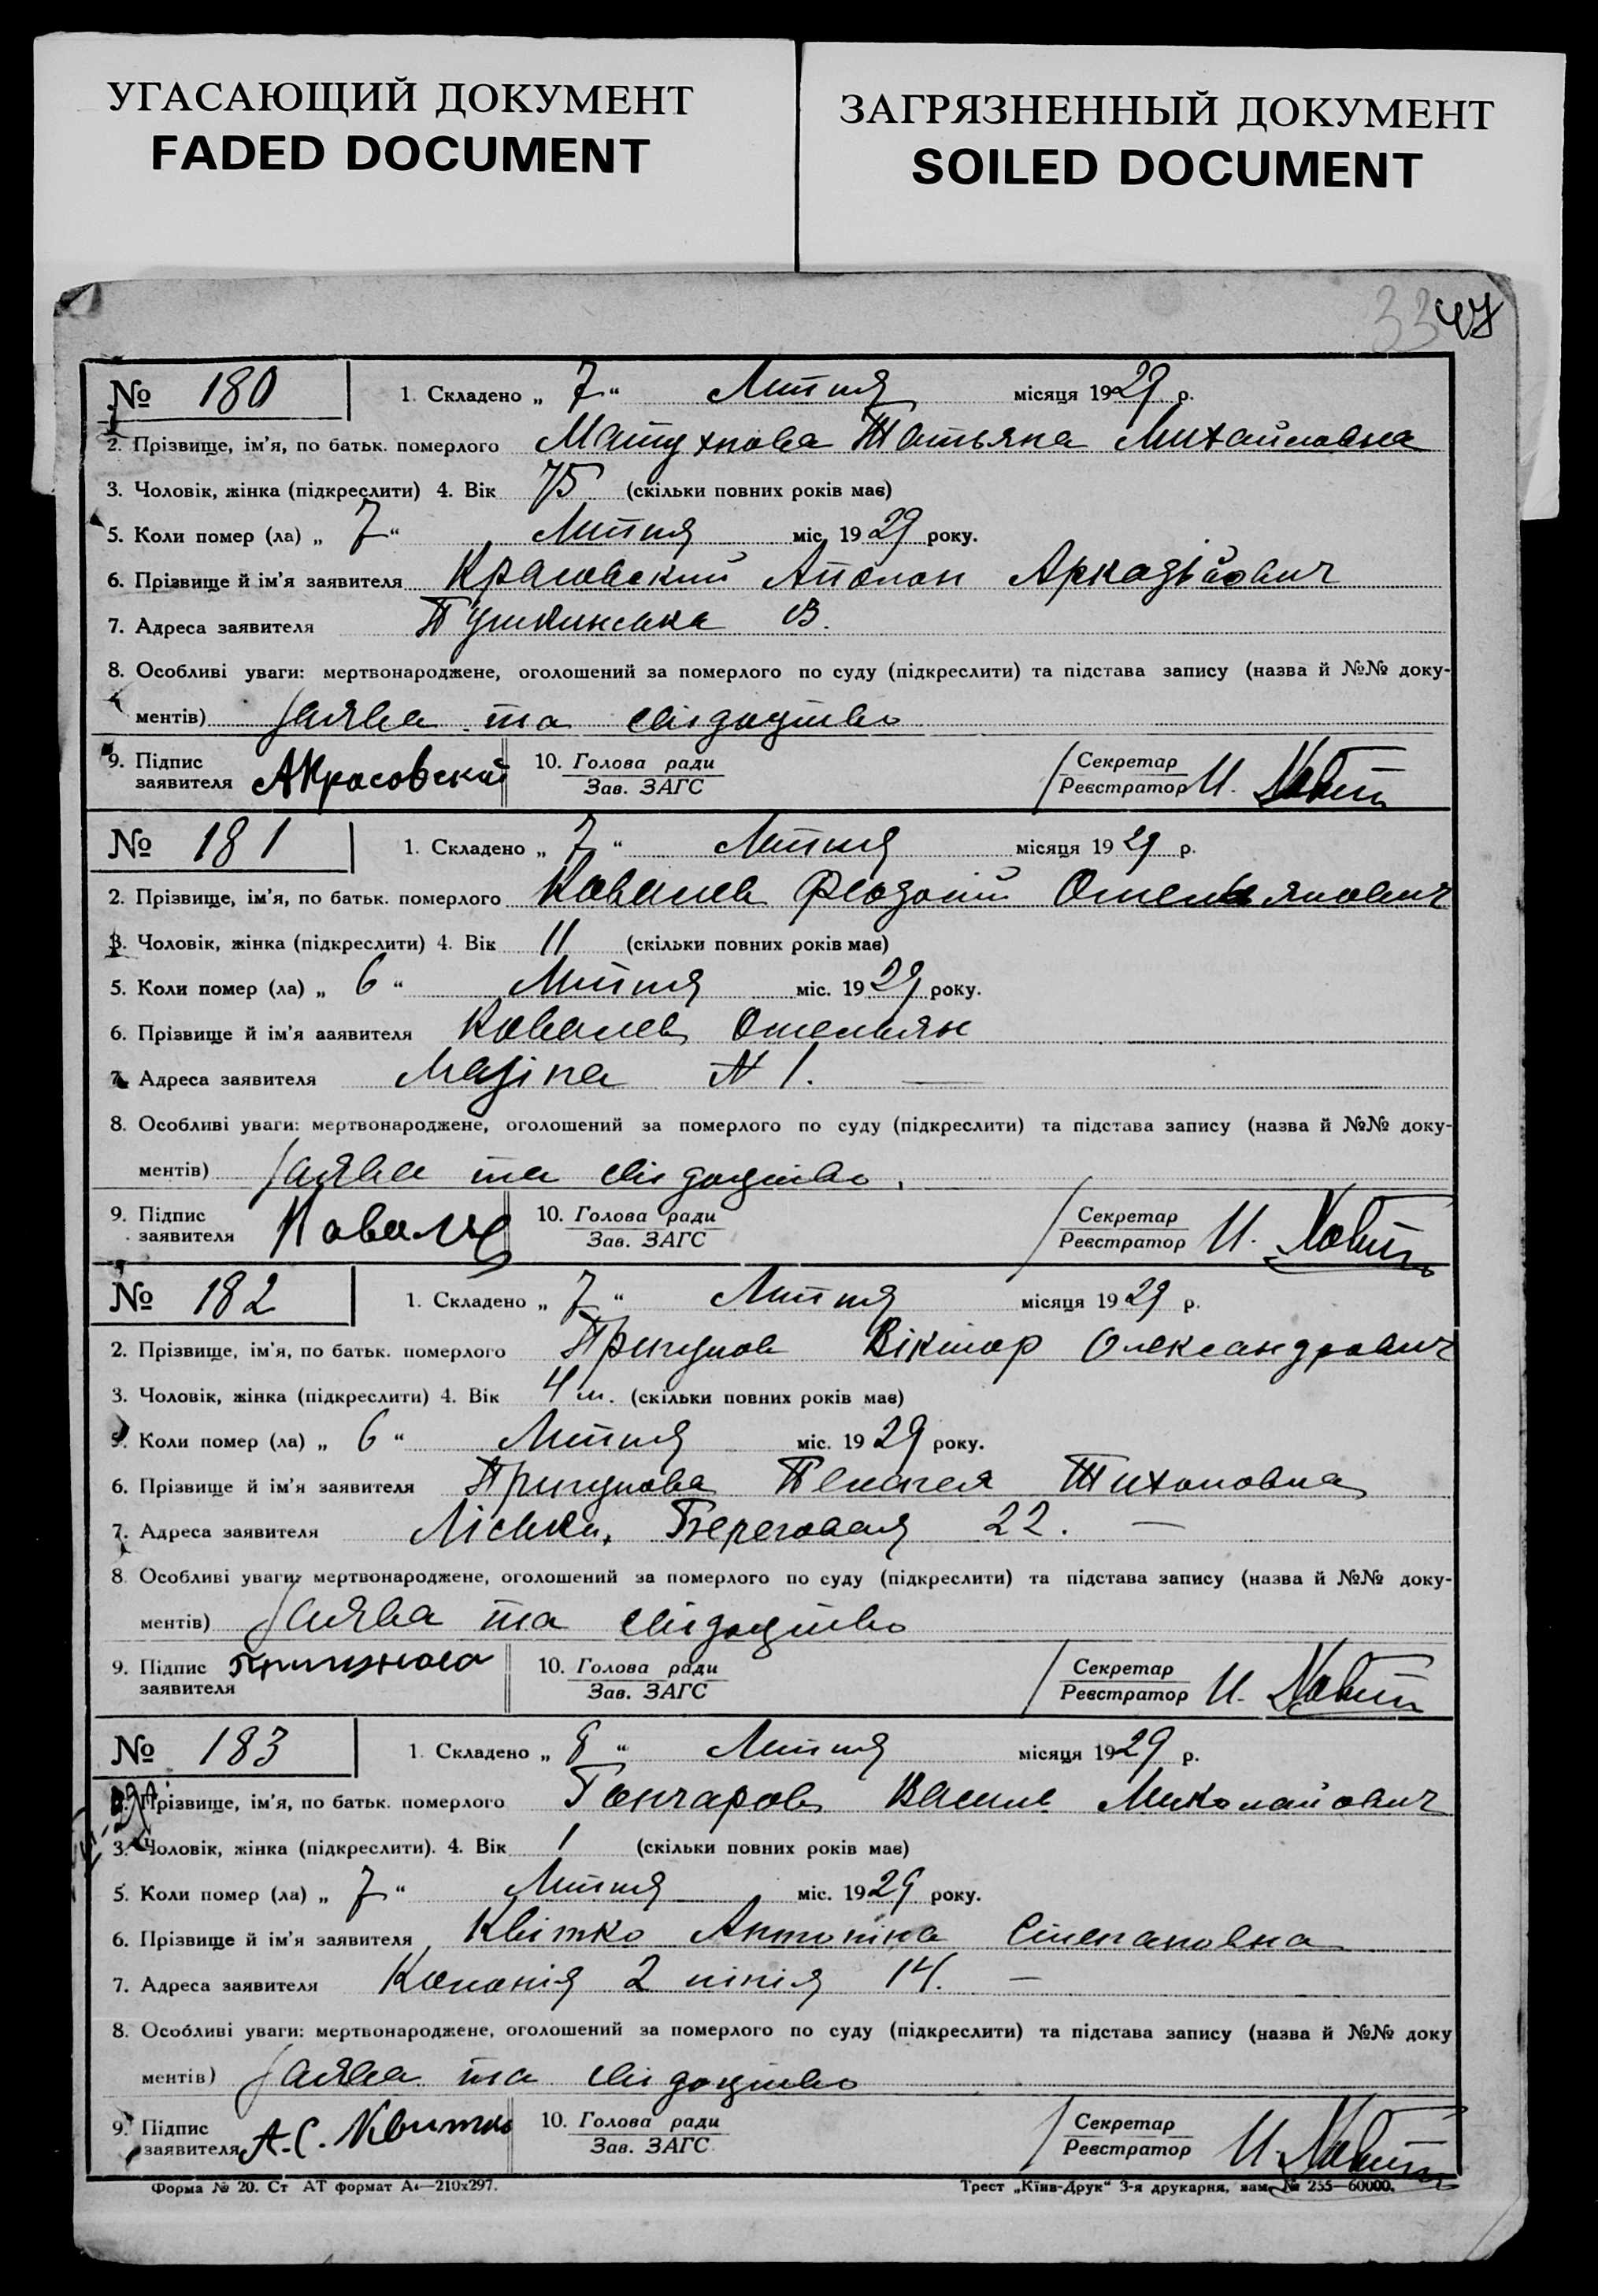 УГАСАЮЩИЙ ДОКУМЕНТ
FADED DOCUMENT
ЗАГРЯЗНЕННЫЙ ДОКУМЕНТ
SOILED DOCUMENT
33 47
№ 180 1. Складено „ 7 “ Липня місяця 1929 р.
2. Прізвище, ім'я, по батьк. померлого Матухнова Татьяна Михайловна
3. Чоловік, жінка (підкреслити) 4. Вік 75 (скільки повних років має)
5. Коли помер (ла) „ 7 “ Липня міс. 1929 року.
6. Прізвище й ім'я заявителя Красовский Аполон Аркадійович
7. Адреса заявителя Пушкинська
8. Особливі уваги: мертвонароджене, оголошений за померлого по суду (підкреслити) та підстава запису (назва й №№ доку-
ментів) Заява та свідоцтво
9. Підпис заявителя АКрасовский 10. Голова ради Зав. ЗАГС Секретар Реєстратор И.
№ 181 1. Складено „ 7 “ Липня місяця 1929 р.
2. Прізвище, ім'я, по батьк. померлого Ковалев Феодосій Омельянович
3. Чоловік, жінка (підкреслити) 4. Вік 11 (скільки повних років має)
5. Коли помер (ла) „ 6 “ Липня міс. 1929 року.
6. Прізвище й ім'я заявителя Ковалев Омельян
7. Адреса заявителя Мазіна N 1. —
8. Особливі уваги: мертвонароджене, оголошений за померлого по суду (підкреслити) та підстава запису (назва й №№ доку-
ментів) Заява та свідоцтво.
9. Підпис заявителя Ковалев 10. Голова ради Зав. ЗАГС Секретар Реєстратор И.
№ 182 1. Складено „ 7 “ Липня місяця 1929 р.
2. Прізвище, ім'я, по батьк. померлого Пригунов Віктор Олександрович
3. Чоловік, жінка (підкреслити) 4. Вік 4 м. (скільки повних років має)
5. Коли помер (ла) „ 6 “ Липня міс. 1929 року.
6. Прізвище й ім'я заявителя Пригунова Пелагея Тихоновна
7. Адреса заявителя Ліски, Береговая 22. —
8. Особливі уваги: мертвонароджене, оголошений за померлого по суду (підкреслити) та підстава запису (назва й №№ доку-
ментів) Заява та свідоцтво
9. Підпис заявителя Пригунова 10. Голова ради Зав. ЗАГС Секретар Реєстратор И.
№ 183 1. Складено „ 8 “ Липня місяця 1929 р.
2. Прізвище, ім'я, по батьк. померлого Гончаров Василь Миколайович
3. Чоловік, жінка (підкреслити). 4. Вік 1 (скільки повних років має)
5. Коли помер (ла) „ 7 “ Липня міс. 1929 року.
6. Прізвище й ім'я заявителя Квітко Антоніна Степановна
7. Адреса заявителя Колонія 2 лінія 14. —
8. Особливі уваги: мертвонароджене, оголошений за померлого по суду (підкреслити) та підстава запису (назва й №№ доку
ментів) Заява та свідоцтво
9. Підпис заявителя А. С. Квитко 10. Голова ради Зав. ЗАГС Секретар Реєстратор И.
Форма № 20. Ст АТ формат А4—210х297. Трест „Київ-Друк“ 3-я друкарня, зам. № 255—60000.